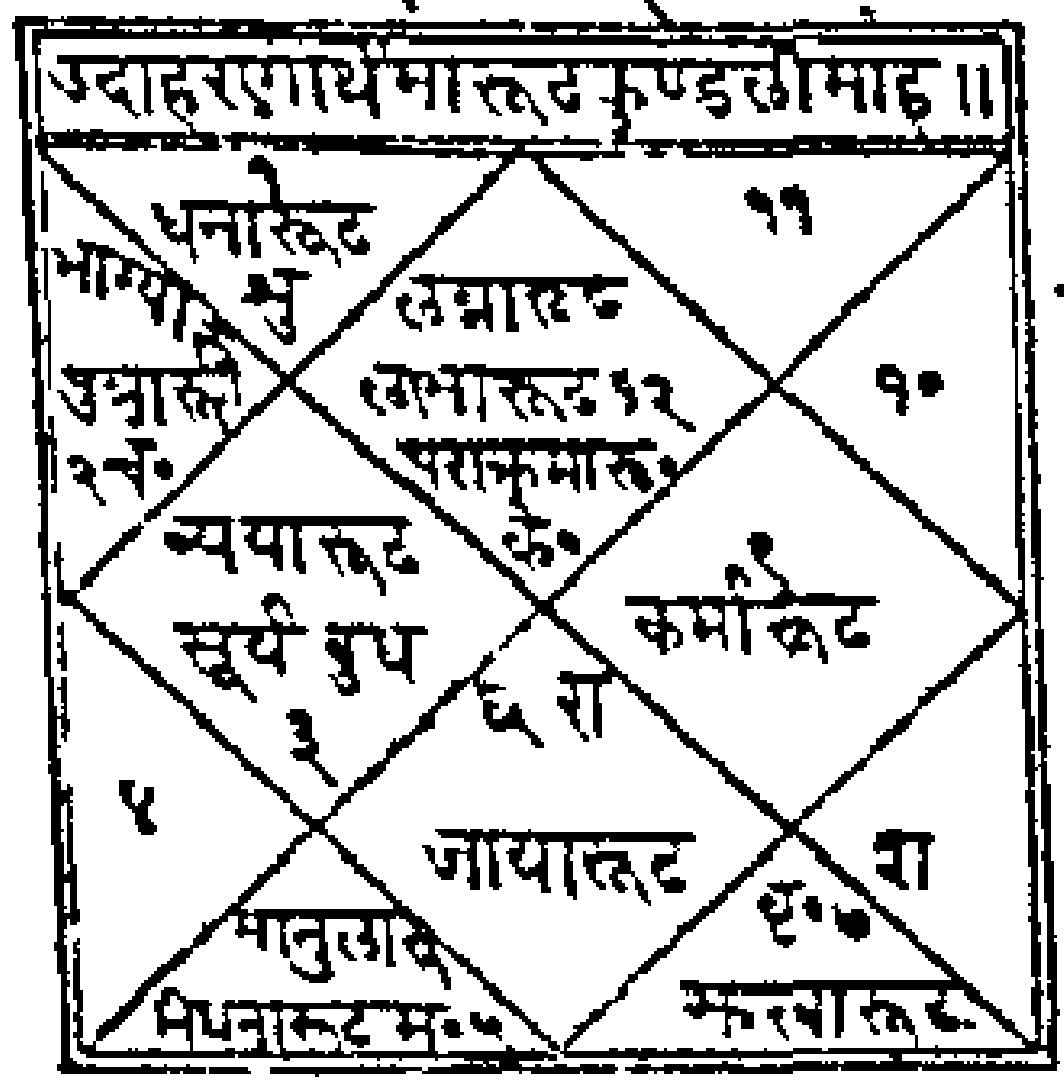 उदाहरणार्थमारूढकुण्डलीमाह ॥
१
धनारूढ
शु
भाग्या
पुत्रारू
२ चं॰
लग्नारूढ
लाभारूढ १२
पराक्रमारू॰
के॰
११
१०
व्ययारूढ
सूर्य बुध
३
९
कर्मारूढ
६ रा
जायारूढ
४
मातुलारू
निधनारूढ मं॰ ५
श
बृ॰ ७